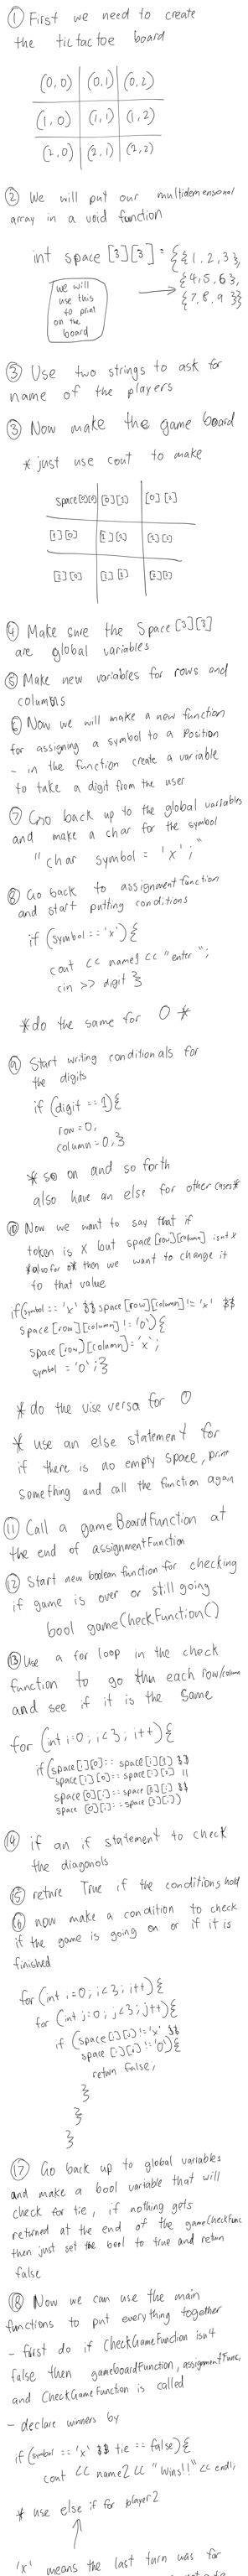 ① First we need to create
the tictactoe board
(0,0) (0,1) (0,2)
(1,0) (1,1) (1,2)
(2,0) (2,1) (2,2)
② We will put our multidemensional
array in a void function
int space [3][3] = {{1,2,3},
{4,5,6},
{7,8,9}}
we will
use this
to print
on the
board
③ Use two strings to ask for
name of the players
③ Now make the game board
* just use cout to make
space[0][0] [0][1] [0][2]
[1][0] [1][1] [1][2]
[2][0] [2][1] [2][2]
④ Make sure the Space [3][3]
are global variables
⑤ Make new variables for rows and
columns
⑥ Now we will make a new function
for assigning a symbol to a Position
- in the function create a variable
to take a digit from the user
⑦ Go back up to the global variables
and make a char for the symbol
"char symbol = 'x';"
⑧ Go back to assignment function
and start putting conditions
if (symbol == 'x') {
cout << name1 << "enter";
cin >> digit }
* do the same for O *
⑨ Start writing conditionals for
the digits
if (digit == 1) {
row = 0;
column = 0; }
* so on and so forth
also have an else for other cases *
⑩ Now we want to say that if
token is X but space[row][column] isnt X
*also for O* then we want to change it
to that value
if (symbol == 'x' && space[row][column] != 'x' &&
space[row][column] != '0') {
space[row][column] = 'x';
symbol = '0'; }
* do the vise versa for O
* use an else statement for
if there is no empty space, print
something and call the function again
⑪ Call a gameBoardFunction at
the end of assignmentFunction
⑫ Start new boolean function for checking
if game is over or still going
bool gameCheckFunction()
⑬ Use a for loop in the check
function to go thru each row/column
and see if it is the same
for (int i=0; i<3; i++) {
if (space[i][0] == space[i][1] &&
space[i][0] == space[i][2] ||
space[0][i] == space[1][i] &&
space[0][i] == space[2][i])
⑭ if an if statement to check
the diagonols
⑮ return True if the conditions hold
⑯ now make a condition to check
if the game is going on or if it is
finished
for (int i=0; i<3; i++) {
for (int j=0; j<3; j++) {
if (space[i][j] != 'x' &&
space[i][j] != '0') {
return false;
}
}
}
⑰ Go back up to global variables
and make a bool variable that will
check for tie, if nothing gets
returned at the end of the gameCheckFunc
then just set the bool to true and return
false
⑱ Now we can use the main
functions to put everything together
- first do if CheckGameFunction isn't
false then gameboardFunction, assignmentFunc,
and CheckGameFunction is called
- declare winners by
if (symbol == 'x' && tie == false) {
cout << name2 << "Wins!!" << endl;
* use else if for player 2
'x' means the last turn was for